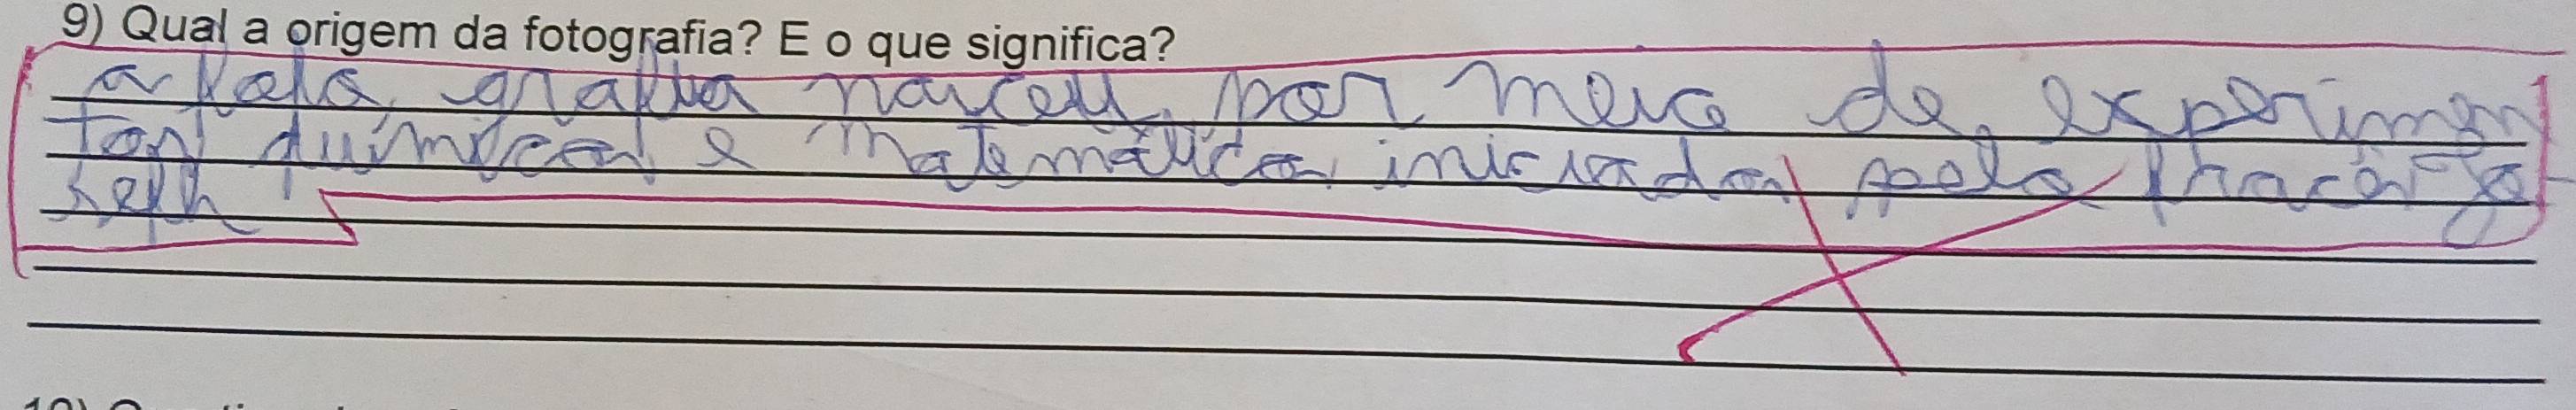 9) Qual a origem da fotografia? E o que significa?
a foto grafia naceu por meio de experimen
tos químicos e matemáticos iniciados pelo
seph